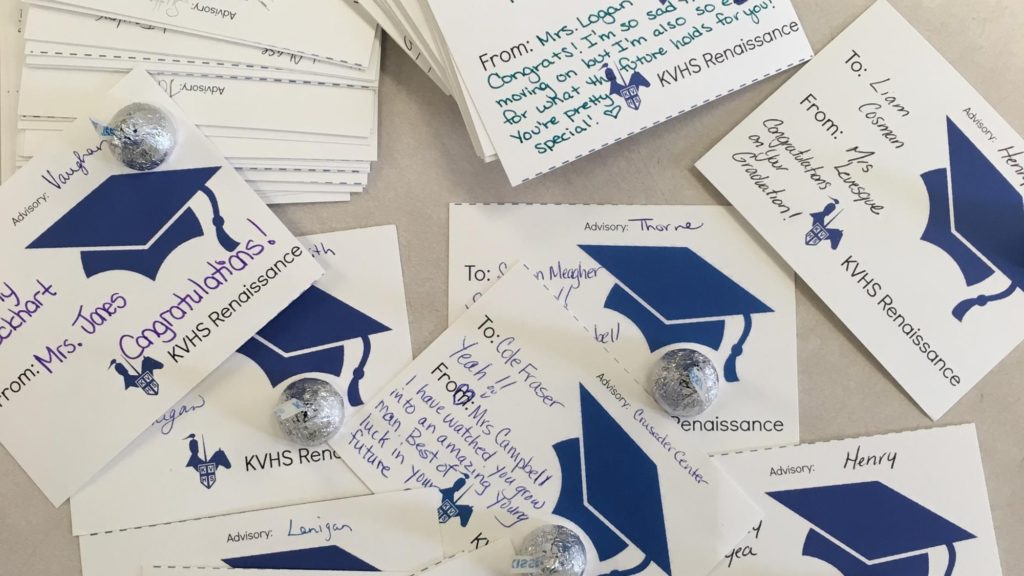 Advisory:
Advisory:
Advisory:
From: Mrs. Logan
Congrats! I'm so sad
moving on but I'm also so
for what the future holds for you!
You're pretty
special! ♡
KVHS Renaissance
To: Liam
Cosman
From: Mrs
Levesque
Congratulations
on your
Graduation!
Advisory: Henry
KVHS Renaissance
Advisory: Vaughan
From: Mrs. Jones
Congratulations!
KVHS Renaissance
KVHS
Advisory: Thorne
To: Meagher
Renaissance
To: Cole Fraser
From: Mrs Campbell
Yeah!!
I have watched you grow
into an amazing young
man. Best of
luck in your
future
Advisory: Crusader Center
Advisory: Lenigan
Advisory: Henry